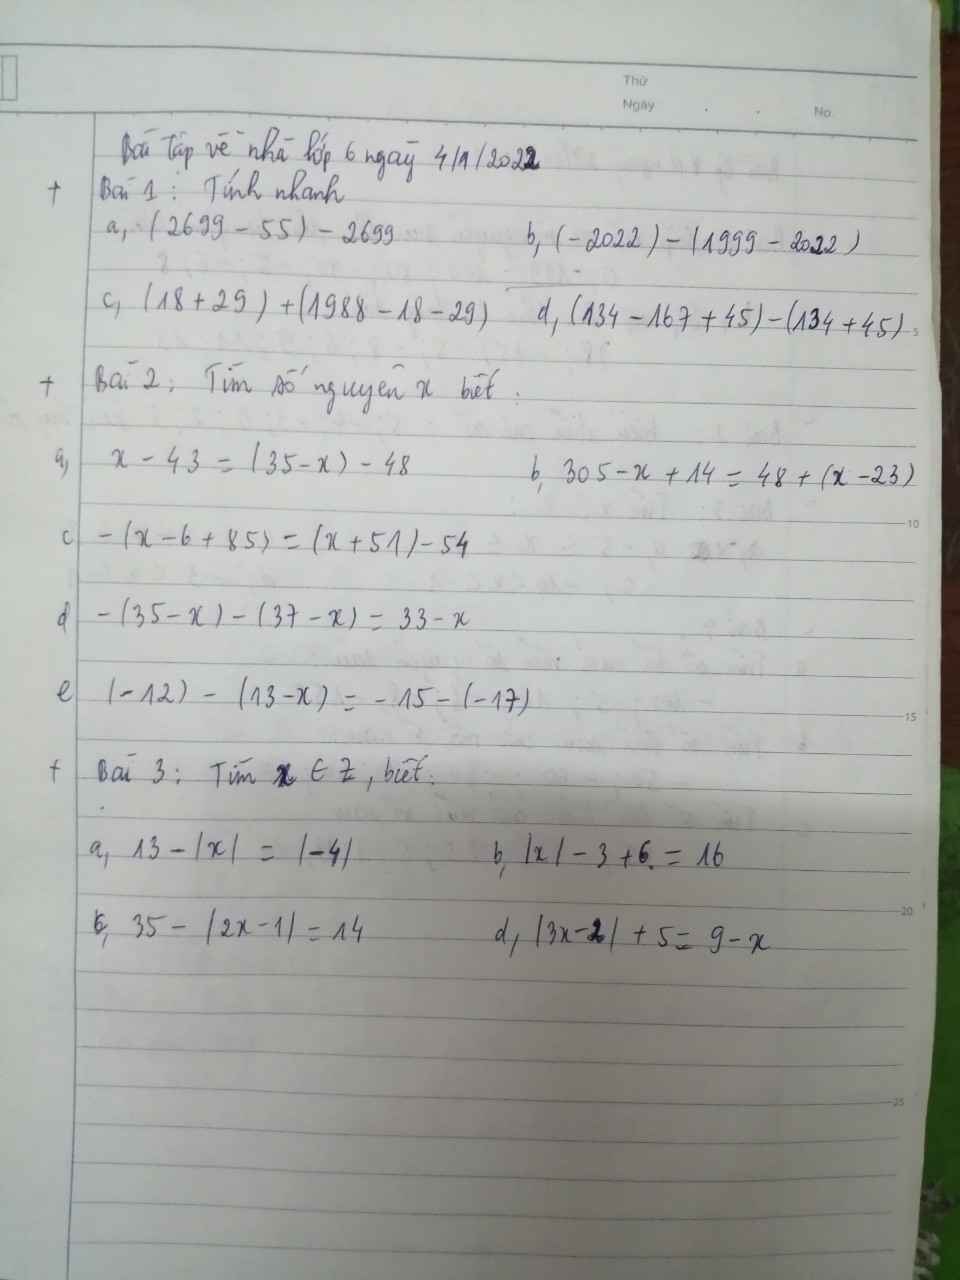 Thứ
Ngày
No.
Bài tập về nhà lớp 6 ngày 4/1/2022
+ Bài 1: Tính nhanh
a, (2699 - 55) - 2699 b, (-2022) - (1999 - 2022)
c, (18 + 29) + (1988 - 18 - 29) d, (134 - 167 + 45) - (134 + 45)
5
+ Bài 2: Tìm số nguyên x biết:
a, x - 43 = (35 - x) - 48 b, 305 - x + 14 = 48 + (x - 23)
10
c - (x - 6 + 85) = (x + 51) - 54
d - (35 - x) - (37 - x) = 33 - x
e (-12) - (13 - x) = - 15 - (-17)
15
+ Bài 3: Tìm x ∈ Z, biết:
a, 13 - |x| = |-4| b, |x| - 3 + 6 = 16
20
c, 35 - |2x - 1| = 14 d, |3x - 2| + 5 = 9 - x
25